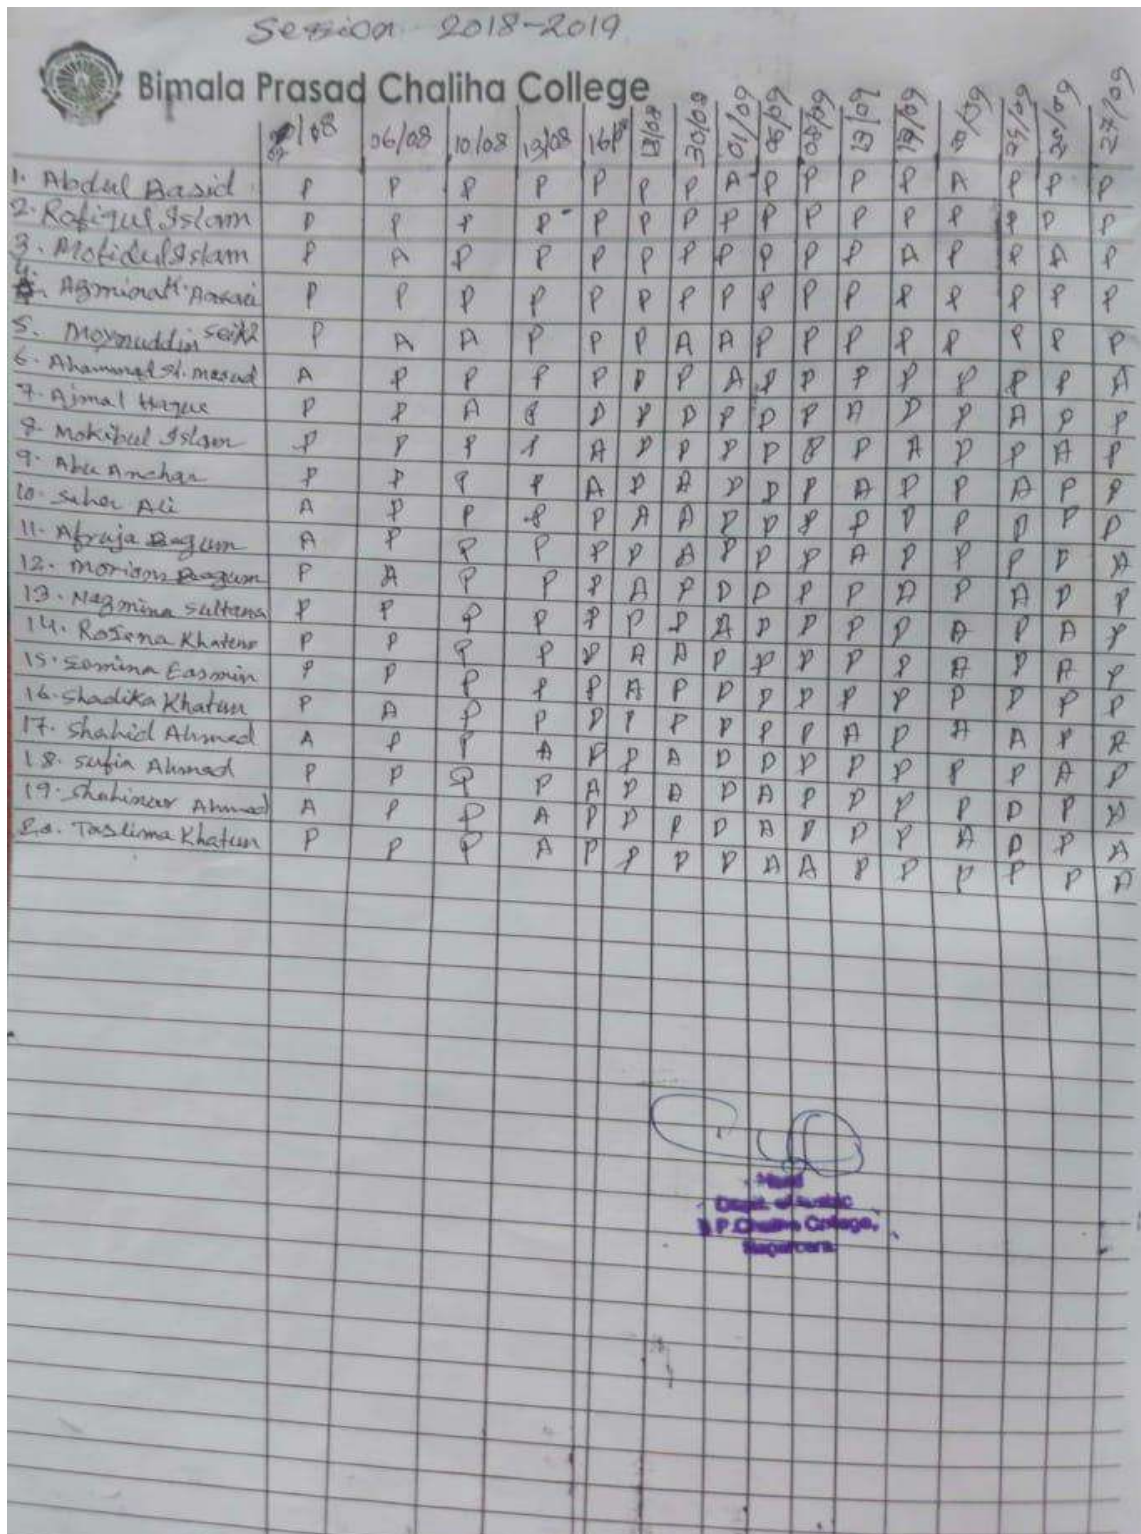 Session 2018-2019
Bimala Prasad Chaliha College
02/08 06/08 10/08 13/08 16/08 18/08 30/08 01/09 06/09 08/09 13/09 19/09 20/09 25/09 27/09
1. Abdul Basid P P P P P P P A P P P P A P P P
2. Rafiqul Islam P P P P P P P P P P P P P P P P
3. Mofidul Islam P A P P P P P P P P P A P P A P
4. P P P P P P P P P P P P P P P P
5. Moynuddin P A A P P P A A P P P P P P P P
6. A P P P P P P A P P P P P P P A
7. Ajmal Haque P P A P P P P P P P A P P A P P
8. Mokibul Islam P P P P A P P P P P P A P P A P
9. Abu Anchar P P P P A P A P P P A P P A P P
10. Saher Ali A P P P P A A P P P P P P P P P
11. Afruja Begum A P P P P P A P P P A P P P P A
12. Moriom Begum P A P P P A P P P P P A P A P P
13. Nazmina Sultana P P P P P P P A P P P P A P A P
14. Rosena Khatun P P P P P A A P P P P P A P A P
15. Easmin P P P P P A P P P P P P P P P P
16. Shadika Khatun P A P P P P P P P P A P A A P
17. Shahid Ahmed A P P A P P A P P P P P P P A P
18. Sufia Ahmed P P P P A P A P A P P P P P P A
19. Ahmed A P P A P P P P A P P P A P P A
20. Taslima Khatun P P P A P P P P A A P P P P P A
Head
Dept. of Arabic
B P Chaliha College,